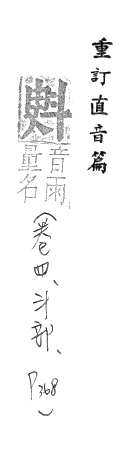 重訂直音篇
斞
音雨
量名
(卷四、斗部、P368)